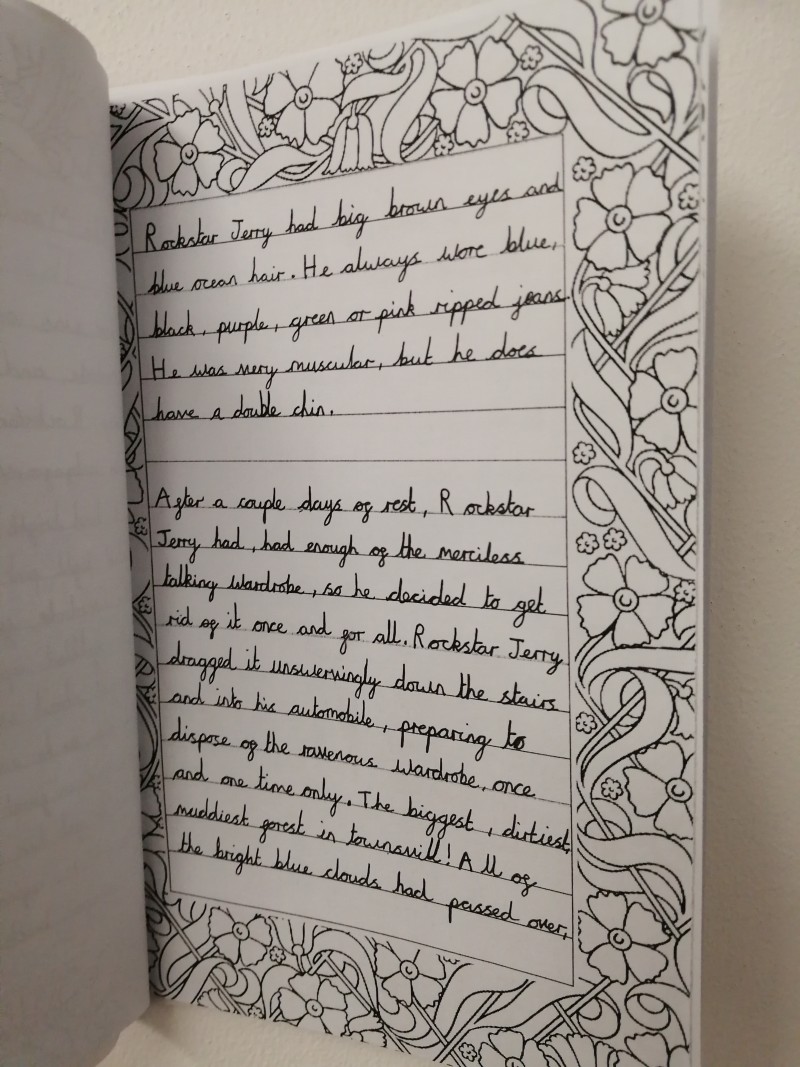 Rockstar Jerry had big brown eyes and
blue ocean hair. He always wore blue,
black, purple, green or pink ripped jeans.
He was very muscular, but he does
have a double chin.
After a couple days of rest, Rockstar
Jerry had, had enough of the merciless
talking wardrobe, so he decided to get
rid of it once and for all. Rockstar Jerry
dragged it unswervingly down the stairs
and into his automobile, preparing to
dispose of the ravenous wardrobe, once
and one time only. The biggest, dirtiest,
muddiest forest in townsvill! All of
the bright blue clouds had passed over,